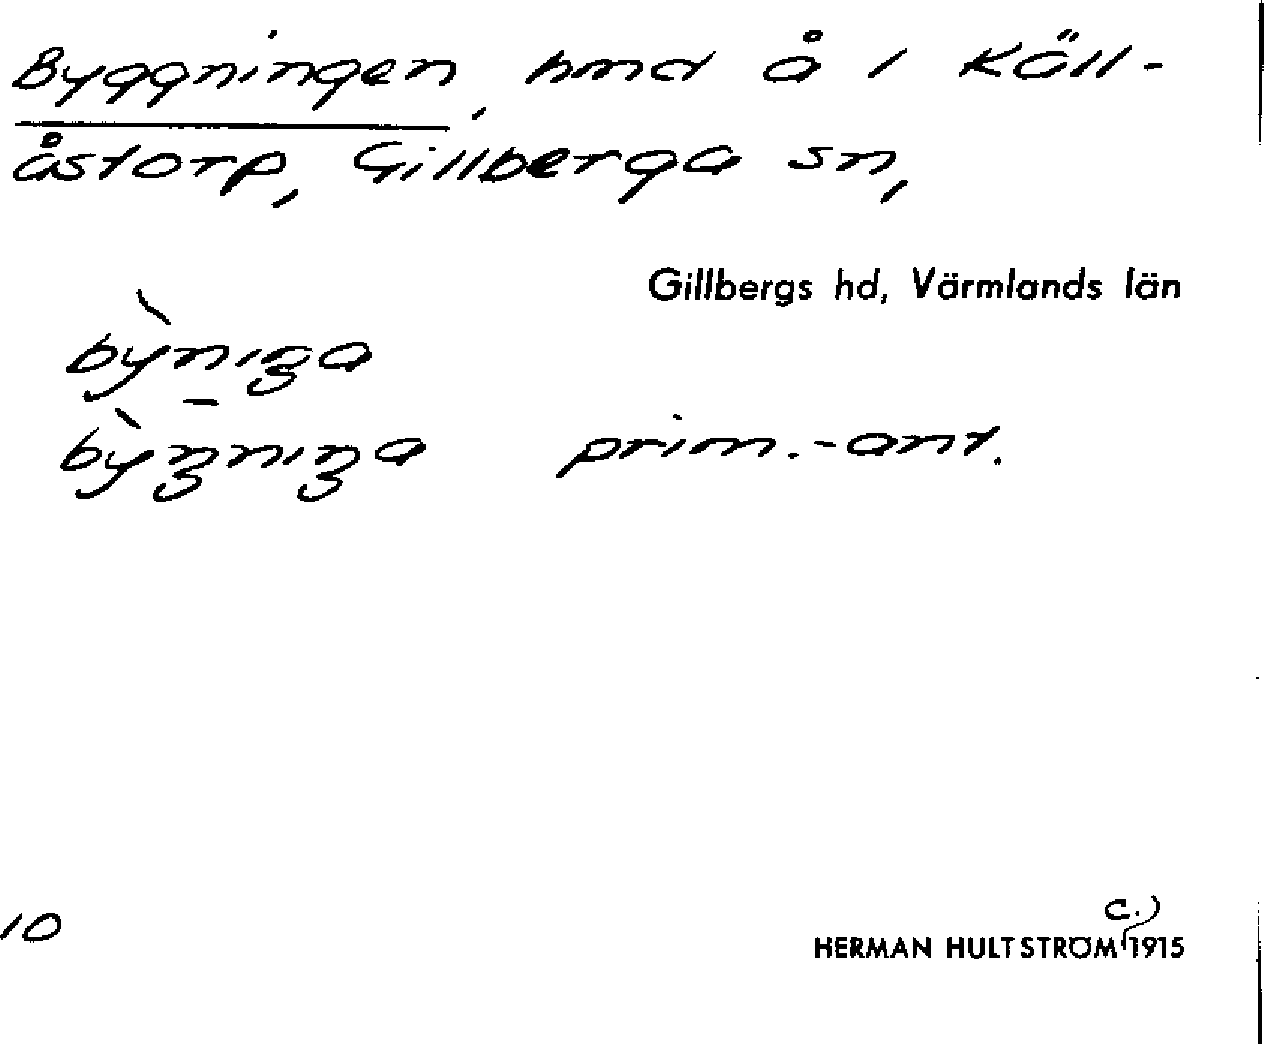 Byggningen, hmd å 1 Käll-
åstorp, Gillberga sn,
Gillbergs hd, Värmlands län
bỳniŋa
bỳŋniŋa prim.-ant.
10
c.)
HERMAN HULTSTRÖM 1915